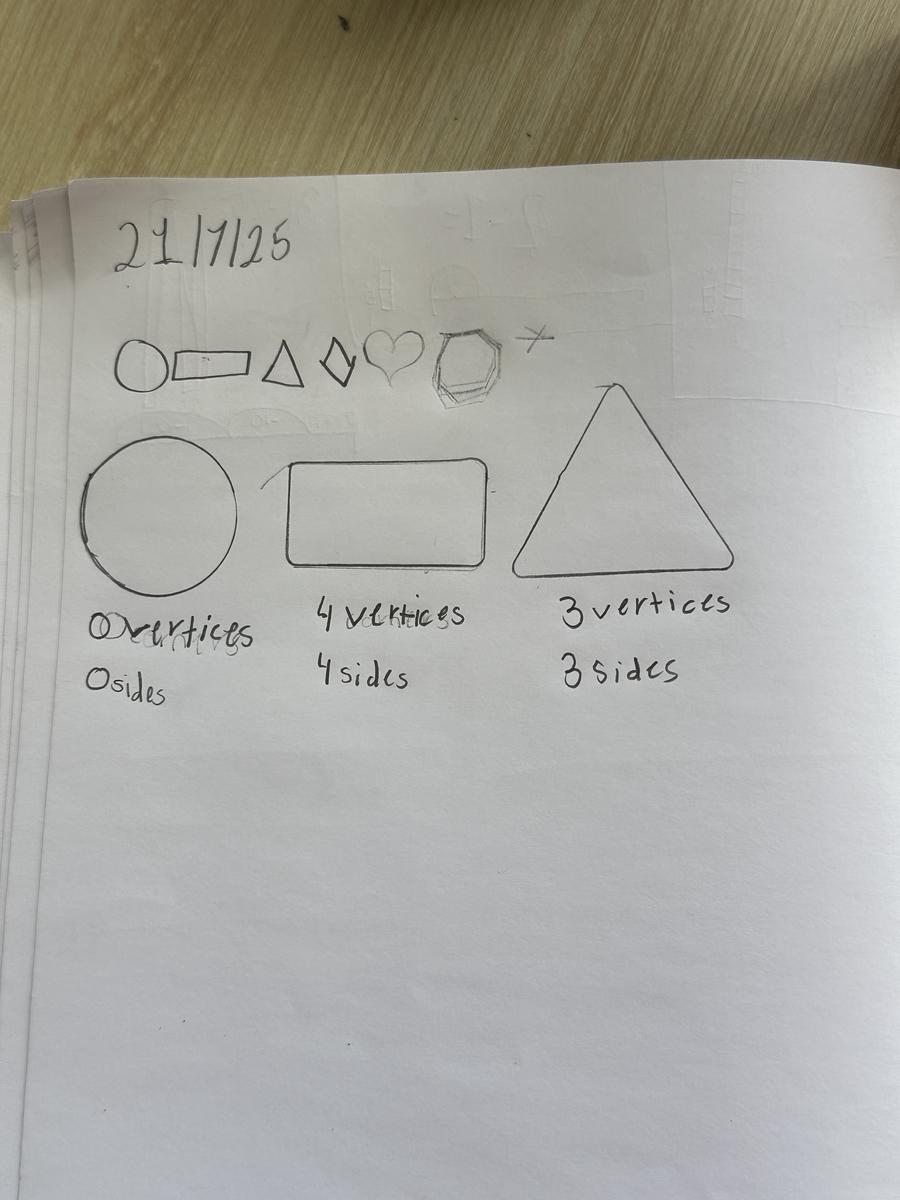 21/7/25
0 vertices 4 vertices 3 vertices
0 sides 4 sides 3 sides